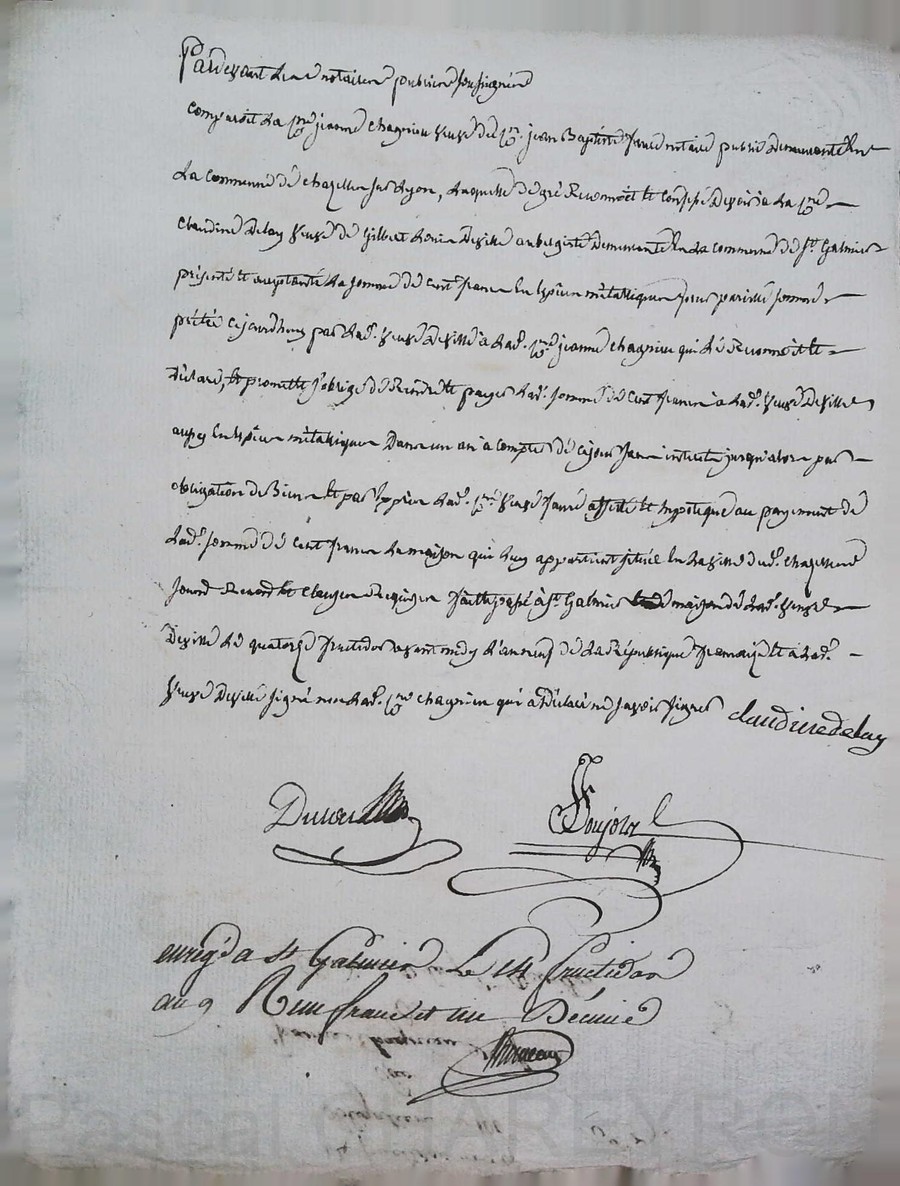 Pardevant les notaires publics soussignés
comparoit la cne jeanne chagnieu veuve de cen. jean Baptiste faure notaire public demeurante En
La commune de chazelles sur Lyon, Laquelle de gré Reconnoit et confesse devoir à La cne
claudine Delay veuve de Gilbert Deville aubergiste demeurante En la commune de St. Galmier
présente et acceptante La somme de cent francs En espèces métalliques pour pareille somme
prêtée cejourdhuy par Lad. veuve Deville à Lad. cne jeanne chagnieu qui Le Reconnoit et
Déclare, et promet et s'oblige de Rendre et payer Lad. somme de cent francs à Lad. veuve Deville
aussy En espèces métalliques Dans un an à compter de cejour sans intérêts jusqu'alors par
obligation de Biens et par Exprès Lad. cne veuve faure affecte et hypotèque au payement de
Lad. somme de cent francs La maison qui Luy appartient située En La ville dud. chazelles
fait et passé à St. Galmier maison de Lad. veuve
Deville Le quatorze fructidor avant midy L'an neuf de La République française et a Lad.
veuve Deville signé non Lad. cne chagnieu qui a Déclaré ne savoir signer claudine delay
enreg. a St Galmier Le 14 fructidor
an 9 R un franc et un Décime